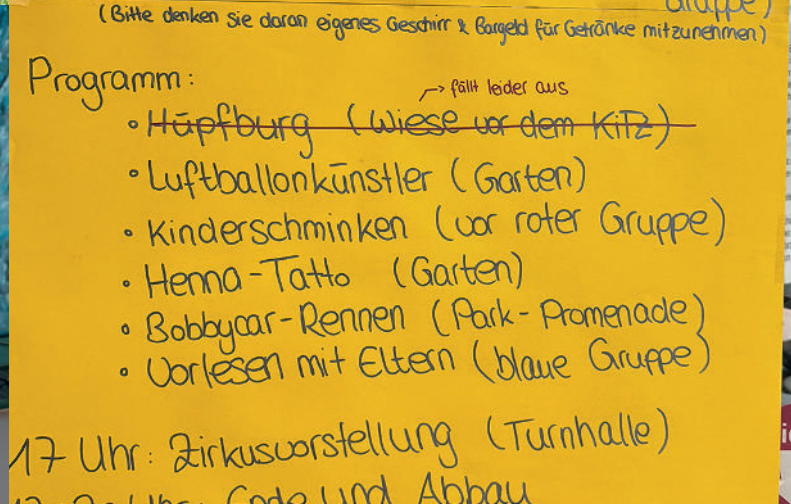 (Bitte denken sie daran eigenes Geschirr & Bargeld für Getränke mitzunehmen)
Programm:
→ fällt leider aus
• Hüpfburg (Wiese vor dem KiTZ)
• Luftballonkünstler (Garten)
• Kinderschminken (vor roter Gruppe)
• Henna-Tatto (Garten)
• Bobbycar-Rennen (Park-Promenade)
• Vorlesen mit Eltern (blaue Gruppe)
17 Uhr: Zirkusvorstellung (Turnhalle)
Uhr: Ende und Abbau